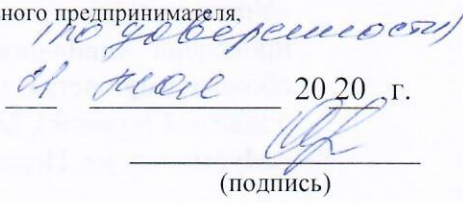 ного предпринимателя,
(по доверенности)
21 мая 2020 г.
(подпись)